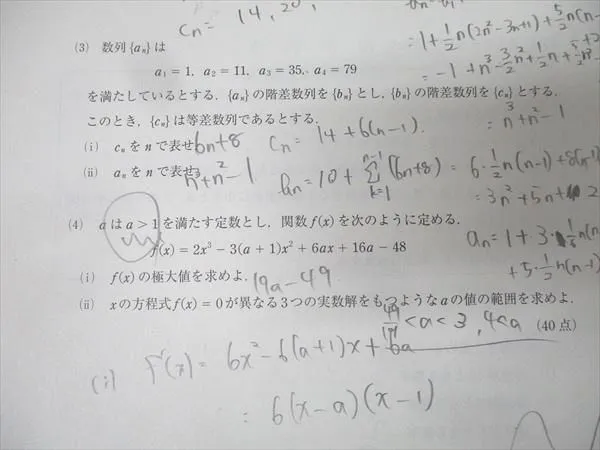 Cn = 14, 20,
(3) 数列{aₙ}は
a₁=1, a₂=11, a₃=35, a₄=79
を満たしているとする. {aₙ}の階差数列を{bₙ}とし, {bₙ}の階差数列を{cₙ}とする.
このとき, {cₙ}は等差数列であるとする.
(i) cₙをnで表せ. 6n+8
Cn = 14+6(n-1).
(ii) aₙをnで表せ. n³+n²-1
= 1+½n(2n²-3n+1)+
= n³+n²-1
bn = 10+Σ_{k=1}^{n-1}(6n+8) = 6·½n(n-1)+8(n-1)
= 3n²+5n+2
an = 1+3·
+5·½n(n-1)
(4) aはa>1を満たす定数とし, 関数f(x)を次のように定める.
f(x)=2x³-3(a+1)x²+6ax+16a-48
(i) f(x)の極大値を求めよ. 19a-49
(ii) xの方程式f(x)=0が異なる3つの実数解をもつようなaの値の範囲を求めよ.
<a<3, 4<a
(40点)
(i) f'(x) = 6x²-6(a+1)x+6a
= 6(x-a)(x-1)